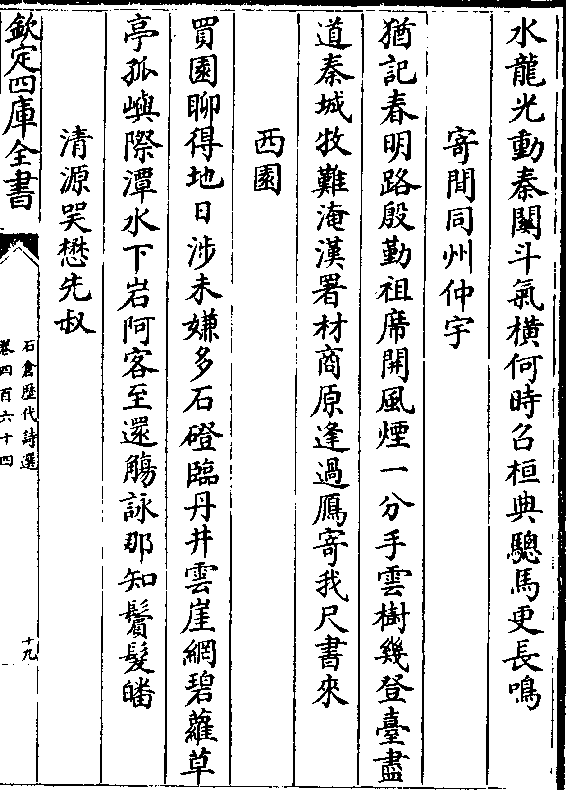 水龍光動秦關斗氣橫何時召桓典驄馬更長鳴
寄間同州仲宇
猶記春明路殷勤祖席開風煙一分手雲樹幾登臺盡
道秦城牧難淹漢署材商原逢過鴈寄我尺書來
西園
買園聊得地日涉未嫌多石磴臨丹井雲崖網碧蘿草
亭孤嶼際潭水下岩阿客至還觴詠那知鬢髮皤
清源哭懋先叔
欽定四庫全書
石倉歷代詩選
卷四百六十四
十九